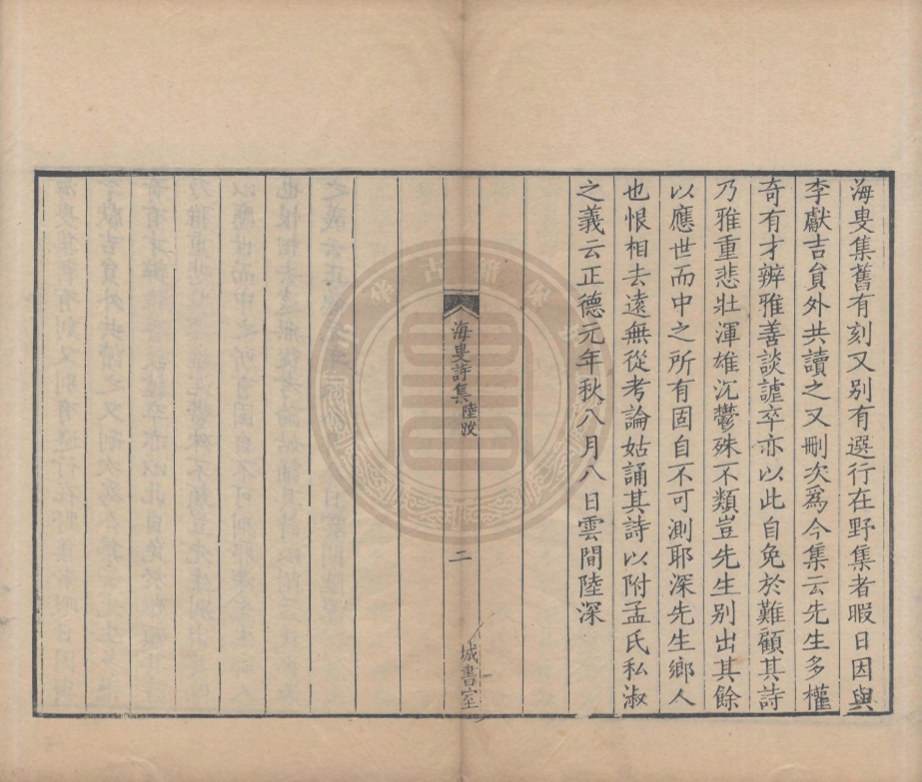 海叟集舊有刻又別有選行在野集者暇日因與
李獻吉貟外共讀之又刪次爲今集云先生多權
奇有才辨雅善談謔卒亦以此自免於難顧其詩
乃雅重悲壯渾雄沉鬱殊不類豈先生別出其餘
以應世而中之所有固自不可測耶深先生鄉人
也恨相去遠無從考論姑誦其詩以附孟氏私淑
之義云正德元年秋八月八日雲間陸深
海叟詩集 陸跋
二
城書室